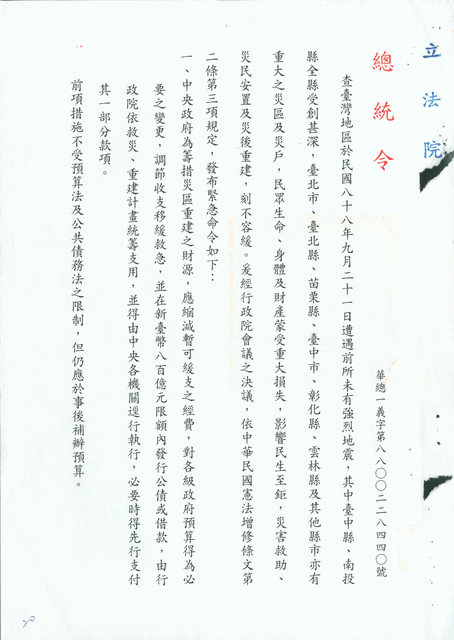 立法院
總統令
華總一義字第八八○○二二八四四○號
查臺灣地區於民國八十八年九月二十一日遭遇前所未有強烈地震，其中臺中縣、南投
縣全縣受創甚深，臺北市、臺北縣、苗栗縣、臺中市、彰化縣、雲林縣及其他縣市亦有
重大之災區及災戶，民眾生命、身體及財產蒙受重大損失，影響民生至鉅，災害救助、
災民安置及災後重建，刻不容緩。爰經行政院會議之決議，依中華民國憲法增修條文第
二條第三項規定，發布緊急命令如下：
一、中央政府為籌措災區重建之財源，應縮減暫可緩支之經費，對各級政府預算得為必
要之變更，調節收支移緩救急，並在新臺幣八百億元限額內發行公債或借款，由行
政院依救災、重建計畫統籌支用，並得由中央各機關逕行執行，必要時得先行支付
其一部分款項。
前項措施不受預算法及公共債務法之限制，但仍應於事後補辦預算。